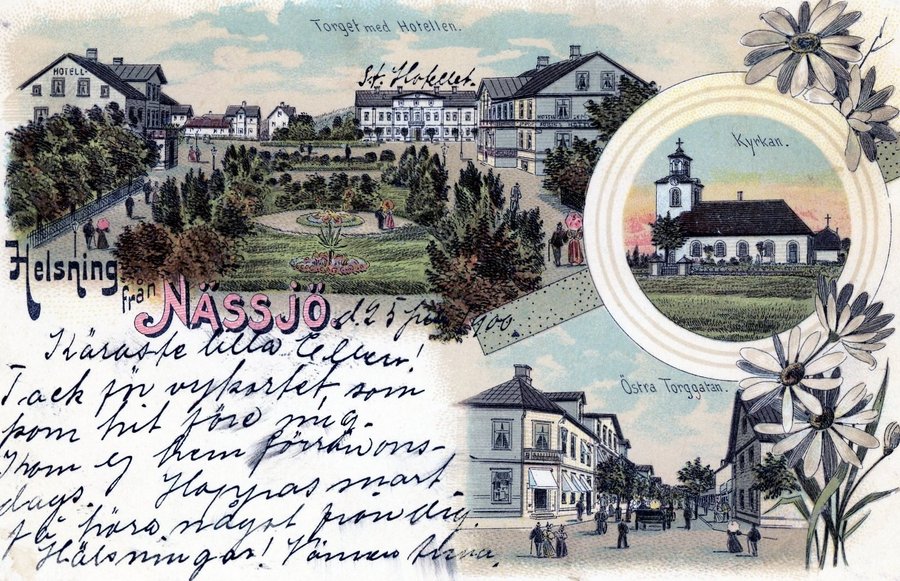 Torget med Hotellen.
HOTELL
St. Hotellet.
Kyrkan.
Helsning
från NÄSSJÖ.
d. 25 1900
Östra Torggatan.
Käraste lilla Ellen!
Tack för vykortet, som
kom hit före mig.
Kom ej hem förr än ons-
dags. Hoppas snart
få höra något från dig.
Hälsningar! Vännen Anna.